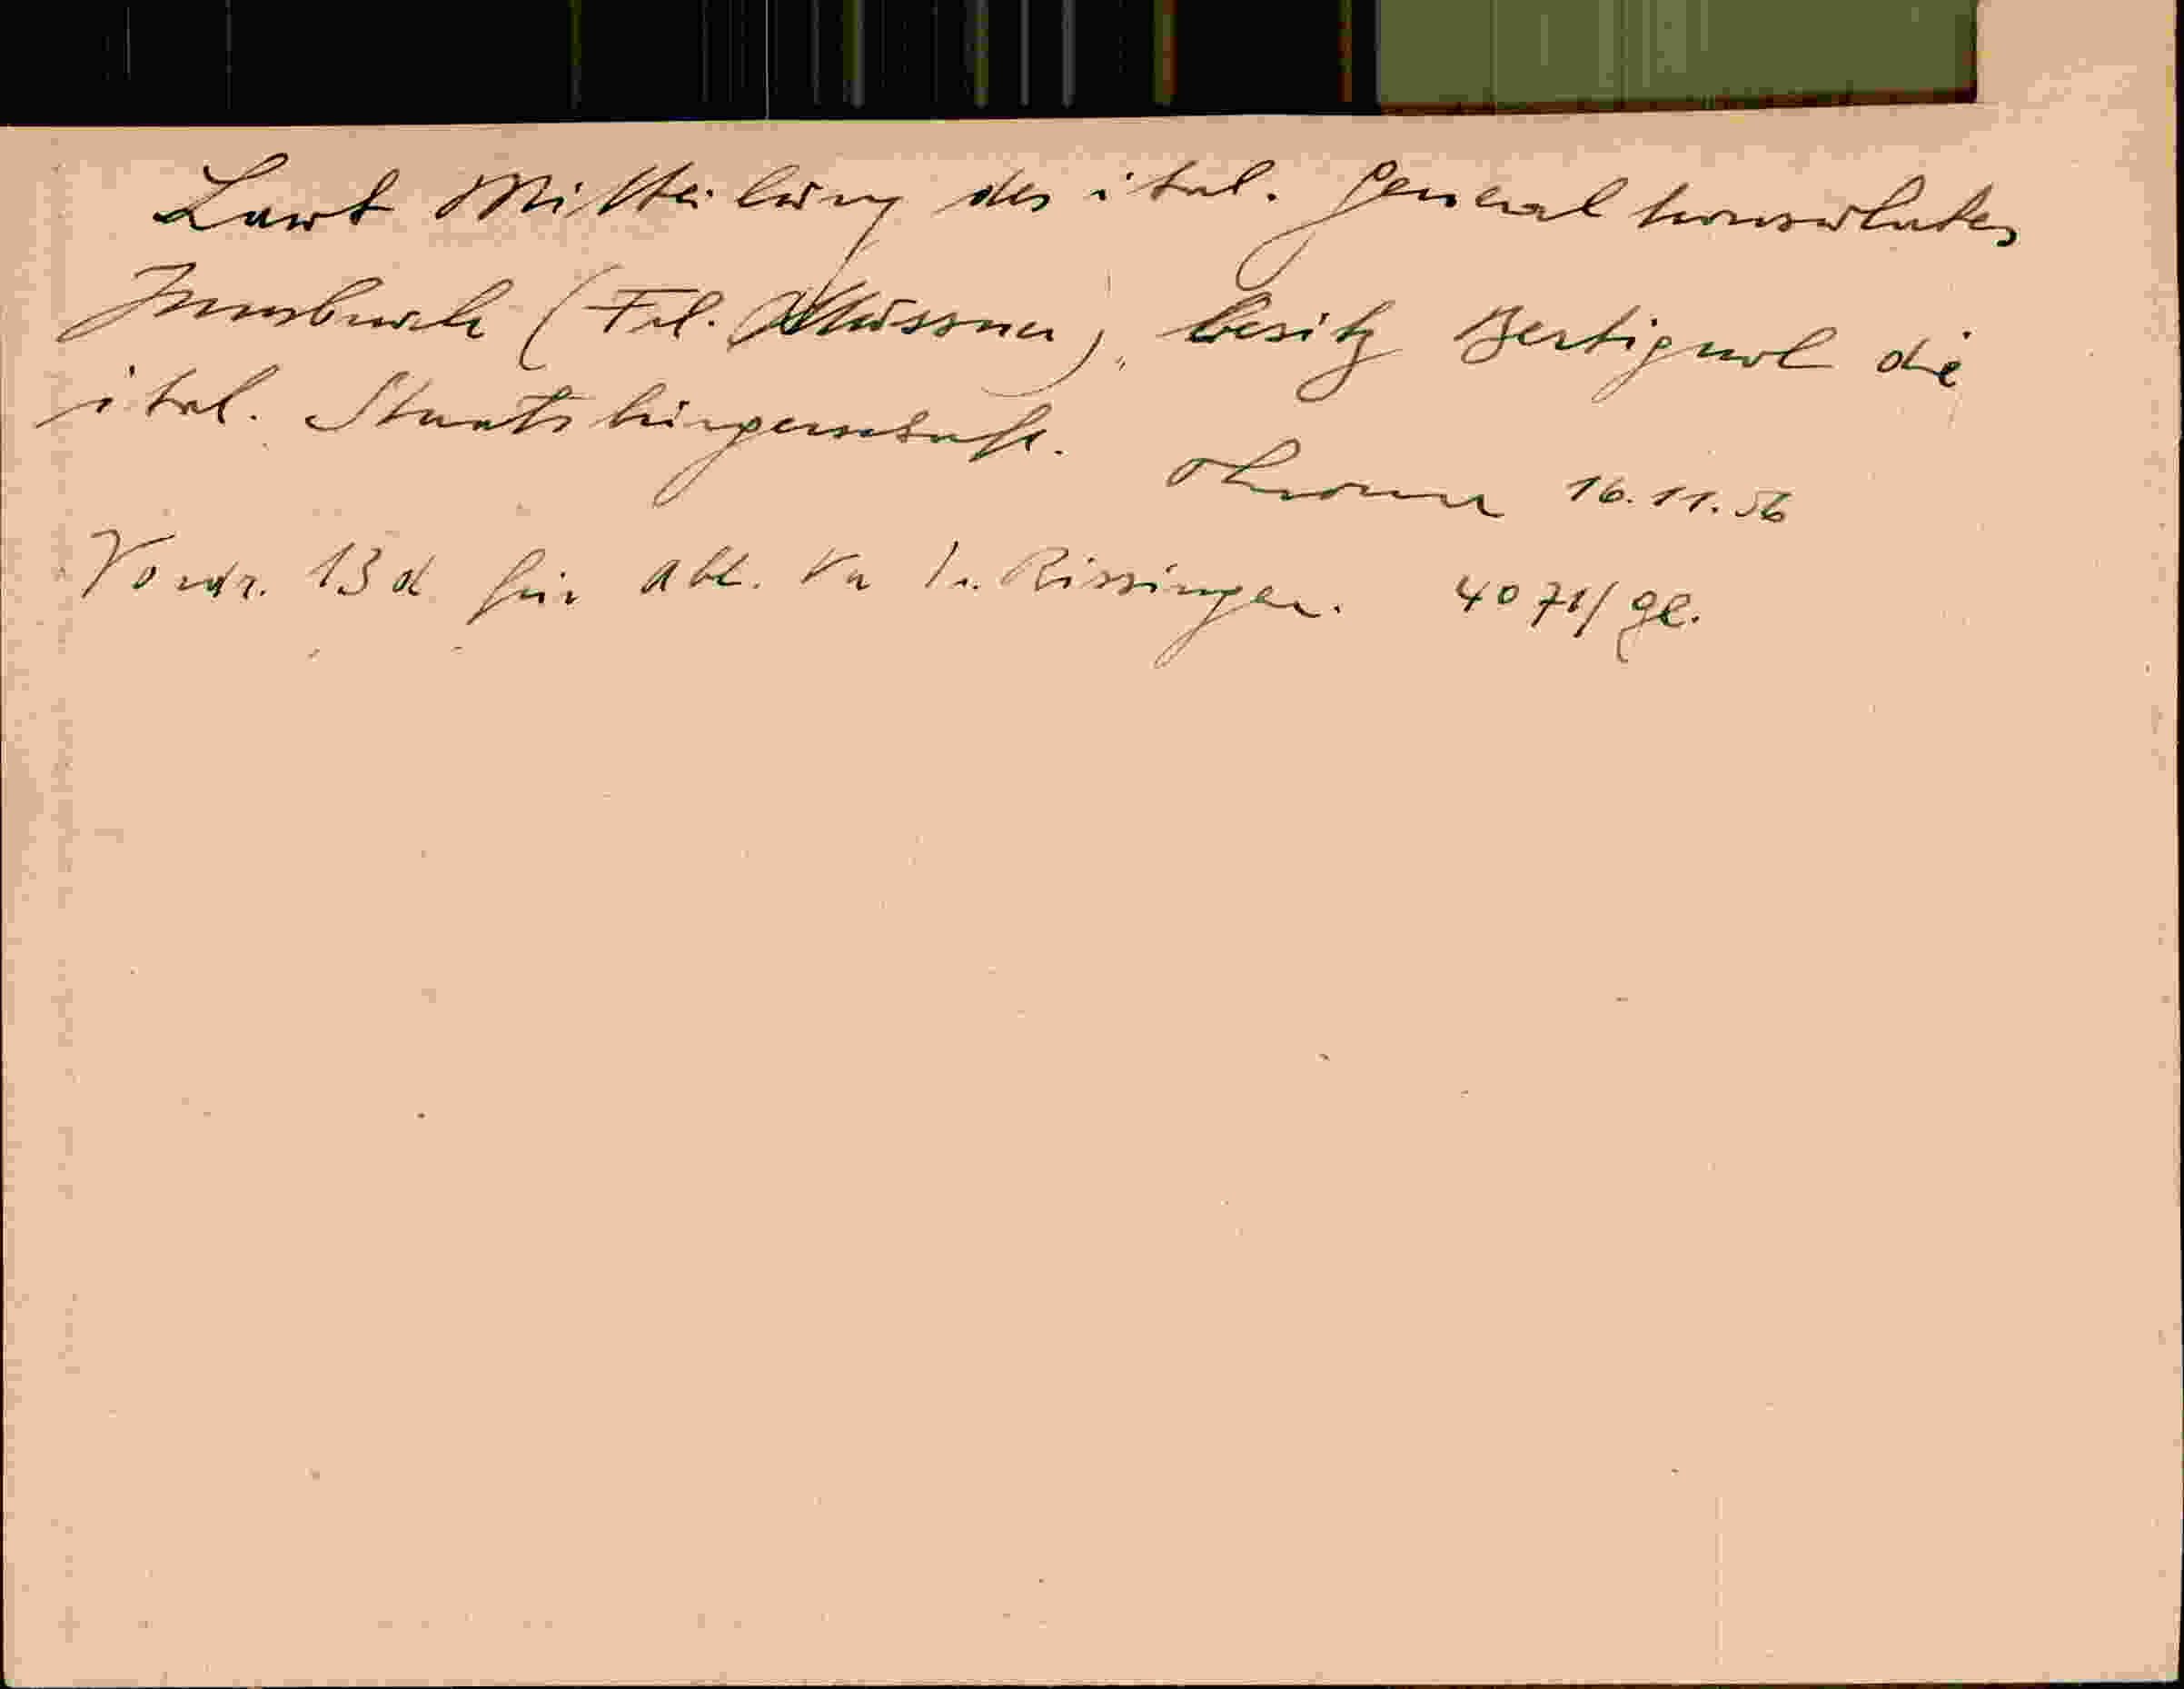 Laut Mitteilung des ital. Generalkonsulates
Innsbruck (Frl. Mussner), besitz Bertignol die
ital. Staatsbürgerschaft.
16.11.56
Vordr. 13d für Abt. Va Rissinger. 4071/ge.